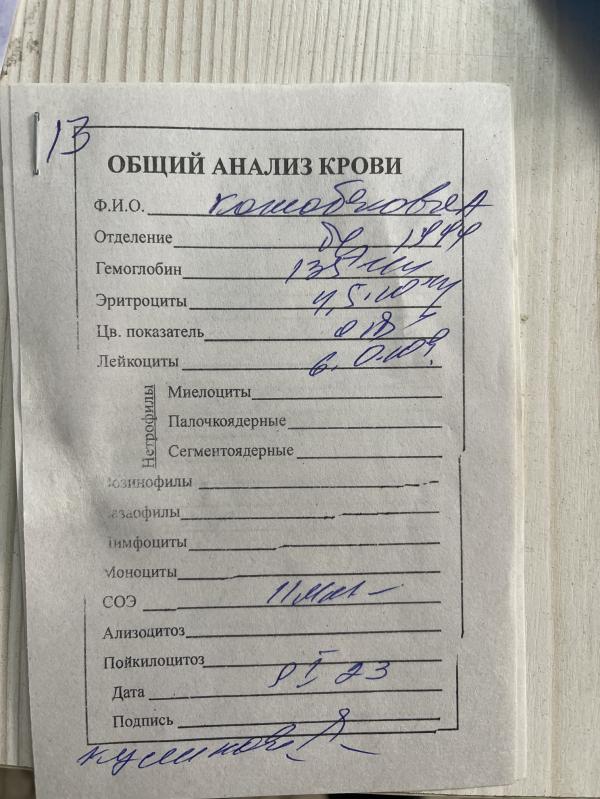 13
ОБЩИЙ АНАЛИЗ КРОВИ
Ф.И.О.
Отделение 1944
Гемоглобин 135
Эритроциты 4,5.10
Цв. показатель
Лейкоциты 6.0.109
Нетрофилы
Миелоциты
Палочкоядерные
Сегментоядерные
озинофилы
азаофилы
имфоциты
Моноциты
СОЭ 11мм
Ализоцитоз
Пойкилоцитоз
Дата I 23
Подпись